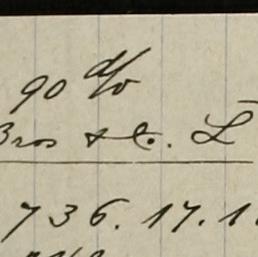 90 d/o
Bros & Co. L
736.17.1